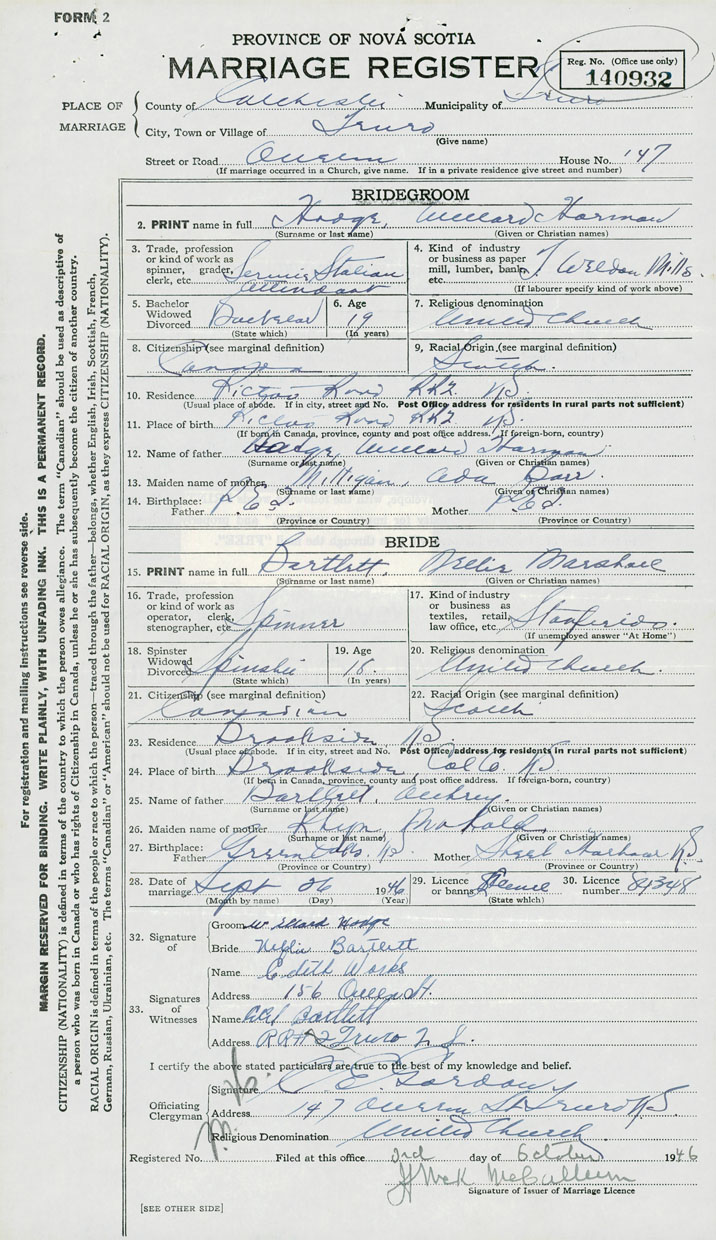 FORM 2
PROVINCE OF NOVA SCOTIA
MARRIAGE REGISTER
Reg. No. (Office use only)
140932
PLACE OF MARRIAGE
County of Colchester Municipality of Truro
City, Town or Village of Truro
(Give name)
Street or Road Queen House No. 147
(If marriage occurred in a Church, give name. If in a private residence give street and number)
BRIDEGROOM
2. PRINT name in full Hodge, Willard Harman
(Surname or last name) (Given or Christian names)
3. Trade, profession or kind of work as spinner, grader, clerk, etc. Service Station Attendant
4. Kind of industry or business as paper mill, lumber, bank, etc. J. Weldon Mills.
(If labourer specify kind of work above)
5. Bachelor Widowed Divorced Bachelor
(State which)
6. Age 19
(In years)
7. Religious denomination United Church
8. Citizenship (see marginal definition)
9. Racial Origin (see marginal definition) Scotch.
10. Residence Pictou Road RR2 NS
(Usual place of abode. If in city, street and No. Post Office address for residents in rural parts not sufficient)
11. Place of birth Pictou Road RR2 NS
(If born in Canada, province, county and post office address. If foreign-born, country)
12. Name of father Hodge, Willard Harman
(Surname or last name) (Given or Christian names)
13. Maiden name of mother Milligan, Ada
(Surname or last name) (Given or Christian names)
14. Birthplace: Father P.E.I. Mother P.E.I.
(Province or Country) (Province or Country)
BRIDE
15. PRINT name in full Bartlett, Nellie Marshall
(Surname or last name) (Given or Christian names)
16. Trade, profession or kind of work as operator, clerk, stenographer, etc. Spinner
17. Kind of industry or business as textiles, retail, law office, etc. Stanfields.
(If unemployed answer "At Home")
18. Spinster Widowed Divorced Spinster
(State which)
19. Age 18.
(In years)
20. Religious denomination United Church.
21. Citizenship (see marginal definition) Canadian
22. Racial Origin (see marginal definition) Scotch
23. Residence Brookside NS
(Usual place of abode. If in city, street and No. Post Office address for residents in rural parts not sufficient)
24. Place of birth Brookside Col Co. NS
(If born in Canada, province, county and post office address. If foreign-born, country)
25. Name of father Bartlett,
(Surname or last name) (Given or Christian names)
26. Maiden name of mother
(Surname or last name) (Given or Christian names)
27. Birthplace: Father NS. Mother Harbour NS
(Province or Country) (Province or Country)
28. Date of marriage Sept 26 1946
(Month by name) (Day) (Year)
29. Licence or banns Licence
(State which)
30. Licence number 84348
32. Signature of
Groom Willard Hodge
Bride Nellie Bartlett
33. Signatures of Witnesses
Name Edith Works
Address 156 Queen St.
Name Bartlett
Address RR# 2 Truro N.S.
I certify the above stated particulars are true to the best of my knowledge and belief.
Officiating Clergyman
Signature C. E. Gordon
Address 147 Queen St Truro NS
Religious Denomination United Church
Registered No. Filed at this office 3rd day of October 1946
Signature of Issuer of Marriage Licence
[SEE OTHER SIDE]
For registration and mailing instructions see reverse side.
MARGIN RESERVED FOR BINDING. WRITE PLAINLY, WITH UNFADING INK. THIS IS A PERMANENT RECORD.
CITIZENSHIP (NATIONALITY) is defined in terms of the country to which the person owes allegiance. The term "Canadian" should be used as descriptive of
a person who was born in Canada or who has rights of Citizenship in Canada, unless he or she has subsequently become the citizen of another country.
RACIAL ORIGIN is defined in terms of the people or race to which the person—traced through the father—belongs, whether English, Irish, Scottish, French,
German, Russian, Ukrainian, etc. The terms "Canadian" or "American" should not be used for RACIAL ORIGIN, as they express CITIZENSHIP (NATIONALITY).